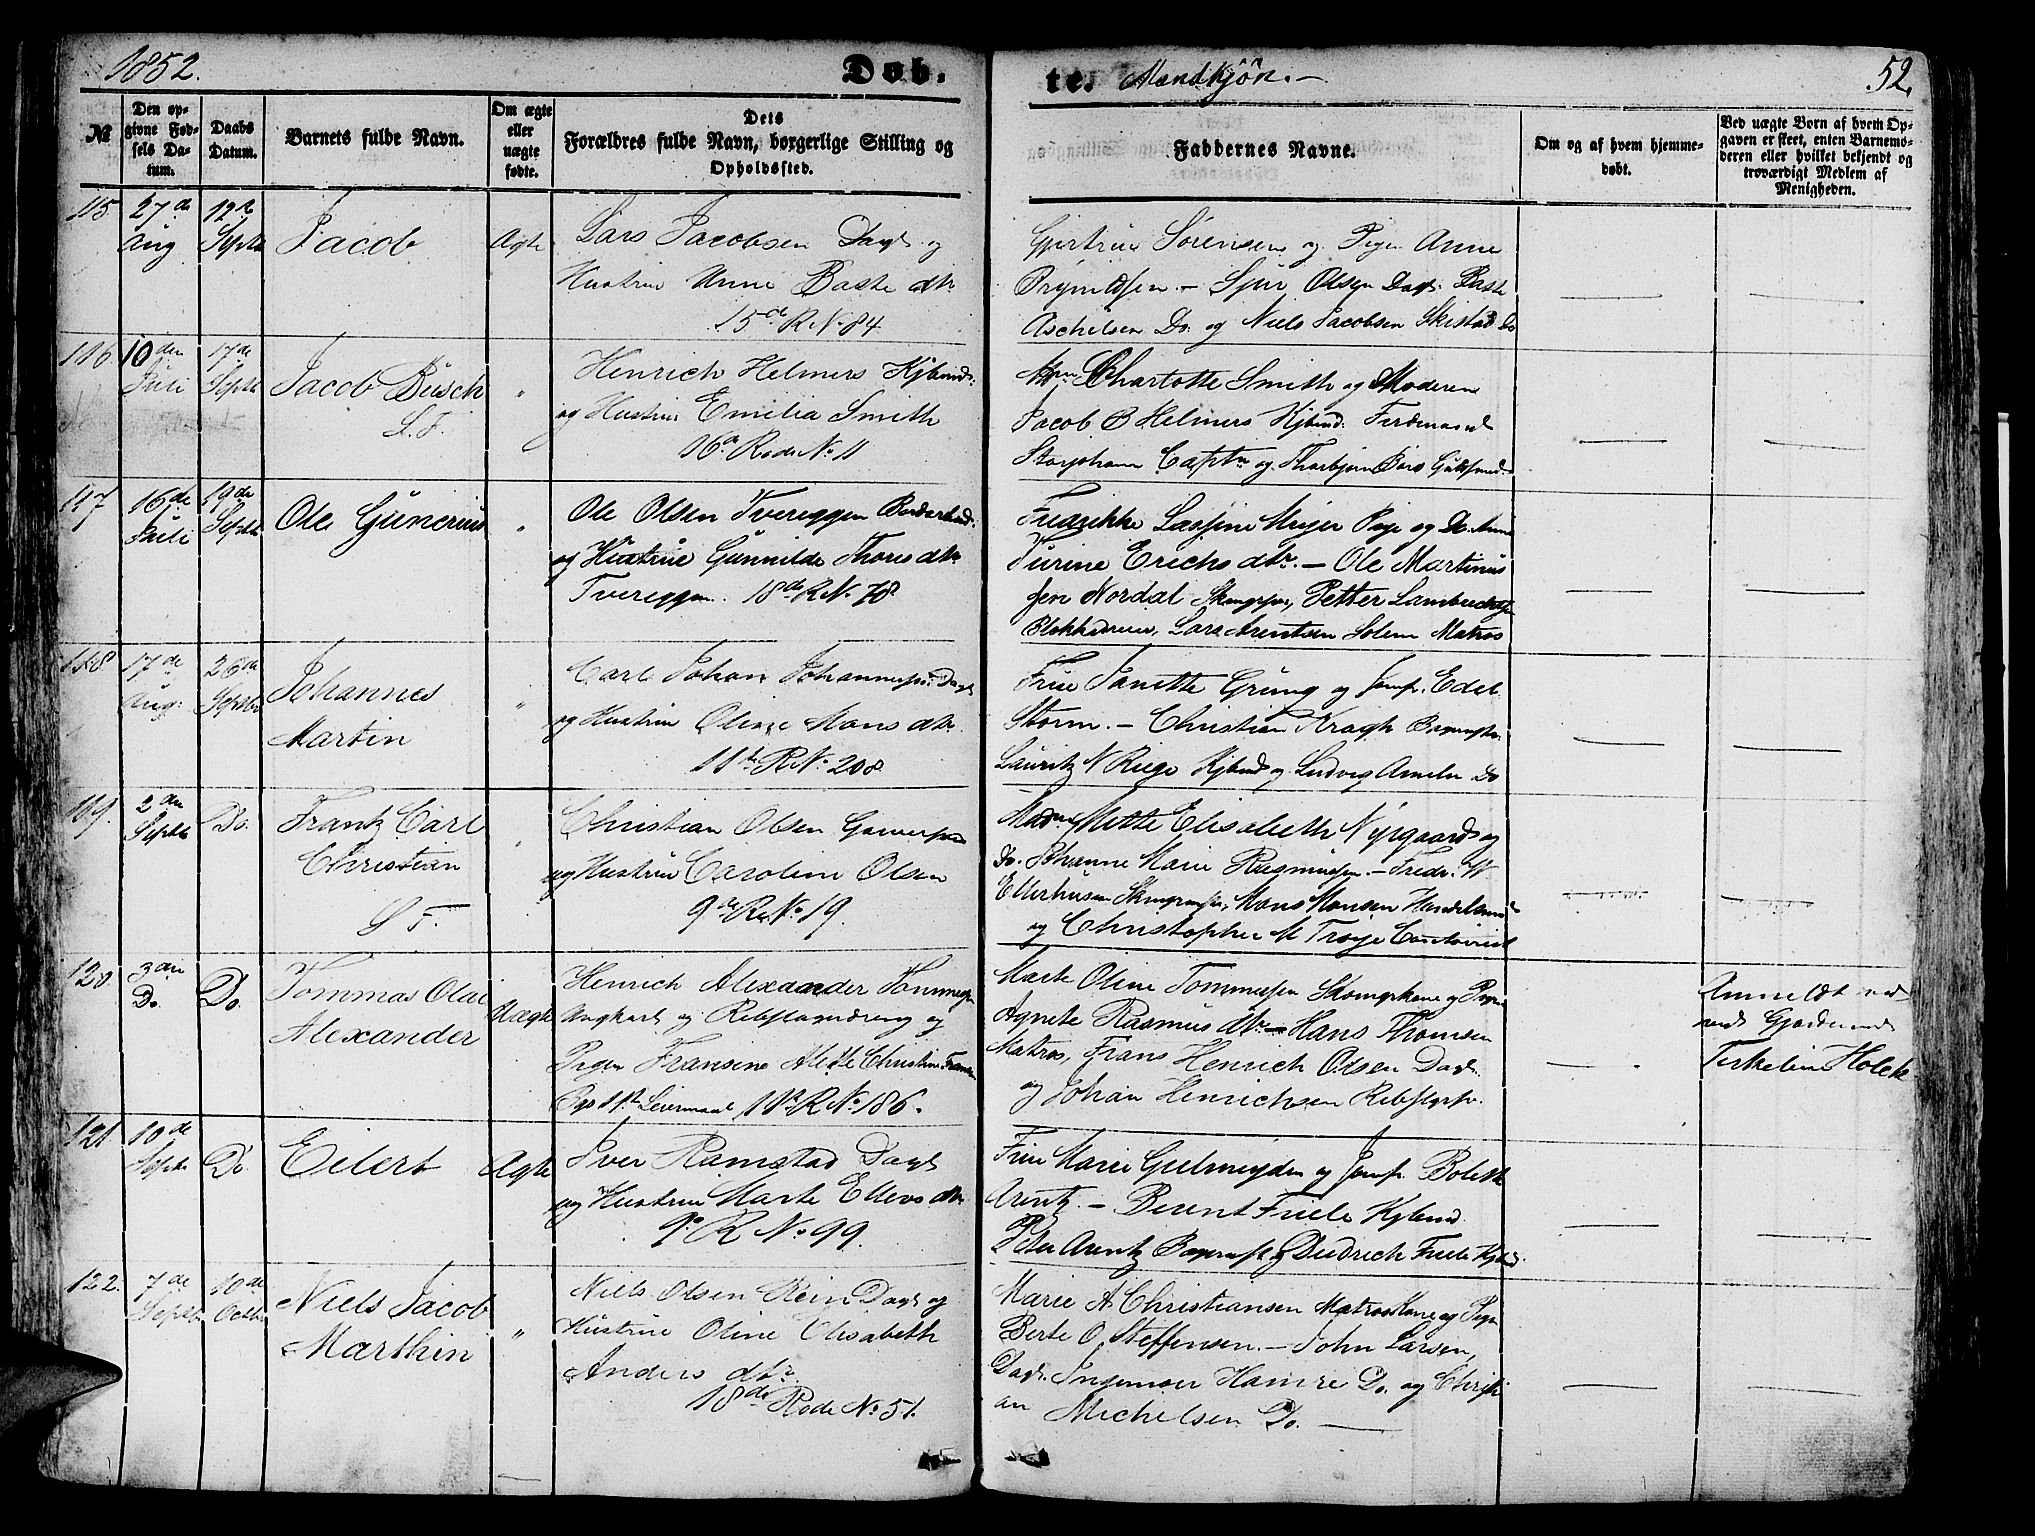 1852. Døb- te. Mandkjön. — 52.
№
Den opgivne Fødsels Datum.
Daabs Datum.
Barnets fulde Navn.
Om ægte eller uægte fødte.
Dets Forældres fulde Navn, borgerlige Stilling og Opholdssted.
Faddernes Navne.
Om og af hvem hjemmedøbt.
Ved uægte Børn af hvem Opgaven er skeet, enten Barnemoderen eller hvilket bekjendt og troværdigt Medlem af Menigheden.
115 27de Aug 12te Septb Jacob Ægte
Lars Jacobsen Dagk og
Hustrue Anne Baste dtr
15de R No 84
Gjertrue Sørensen og Pigen Anne
Brynildsen. — Sjur Olsen Dagk. Baste
Aschelsen Do og Niels Jacobsen Skistad Do
116 10den Juli 17de Septb Jacob Büsch "
S. F.
Henrich Helmers Kjbmd:
og Hustrue Emilia Smith
16de Rode No 11
Charlotte Smith og Moderen
Jacob B Helmers Kjbmd: Ferdinand
Storjohann Captn og Thorbjørn
117 16de Juli 19de Septb Ole Günerius "
Ole Olsen Tvereggen
og Hustrue Günnilde Thores dtr
Tvereggen. 18de R No 78
Fredrikke Meyer Pige og Do Anne
Turine Erichs dtr. — Ole Martinus
sen Nordal Petter Lambrechtsen
Lars Arentsen Solem Matros
118 17de Aug: 26de Septbr Johannes "
Martin
Carl Johan Johannesen Dagk
og Hustrue Oline Mons dtr.
11te R No 208
Frue Janette Grüng og Jomf. Edel
Storm. — Christian Kragh
Lauritz N Riege Kjbmd og Ludvig Do
119. 2den Septb Do. Frantz Carl "
Christian
S F.
Christian Olsen
og Hustrue Caroline Olsen
9de R No 19.
Madme Mette Elisabeth Nÿegaard og
Do. Johanne Marie Rasmussen. — Fredr. W
Ellerhusen Mons Monsen
og Christopher M Troye
120 3den Do. Do. Tommas Olai Uægte
Alexander
Henrich Alexander Hannesen
Ungkarl og Rebslagerdreng og
Pigen Fransine Christine
11te Leiermaal, 11te R No 186.
Marte Oline Tommesen og Pigen
Agnete Rasmus dtr — Hans Thomsen
Matros, Frans Henrich Olsen Dagk.
og Johan Henrichsen
Anmeldt
ved
Terkeline Holck
121 10de Septb Do. Eilert Ægte
Iver Ramstad Dagk
og Hustrue Marte Ellevs dtr
9de R No 99.
Frue Marie Gjelmeyden og Jomfr. Bolette
Arentz. — Berent Friele Kjbmd.
Peter Arentz og Diedrich Friele Kjbmd.
122. 7de Septb 10de Octbr Niels Jacob "
Marthin
Niels Olsen Rein Dagk og
Hustrue Oline Elisabeth
Anders dtr.
18de Rode No 51.
Marie A Christiansen Matros Kone og Pigen
Berte O. Steffensen. — John Larsen,
Dagk. Ingemoer Hamre Do. og Christi
an Michelsen Do. —